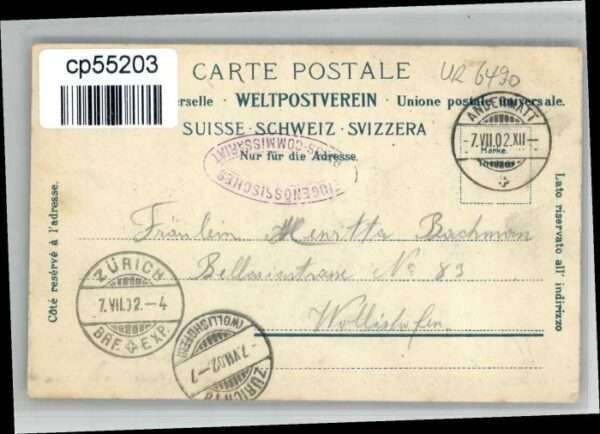 cp55203
CARTE POSTALE
UR 6490
erselle · WELTPOSTVEREIN · Unione postale universale.
SUISSE · SCHWEIZ · SVIZZERA
Nur für die Adresse.
ANDERMATT
-7.VII.02.XII-
Marke.
EIDGENÖSSISCHES
-COMMISSARIAT
Côté réservé à l'adresse.
Lato riservato all' indirizzo
Fräulein Henritta Bachman
Bellariastrasse No 83
Wollishofen.
ZÜRICH
7.VII.02.-4
BRF. EXP.
(WOLLISHOFEN)
-7.VII.02.-7
ZÜRICH